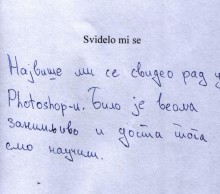 Svidelo mi se
Највише ми се свидео рад у
Photoshop-u. Било је веома
занимљиво и доста тога
смо научили.